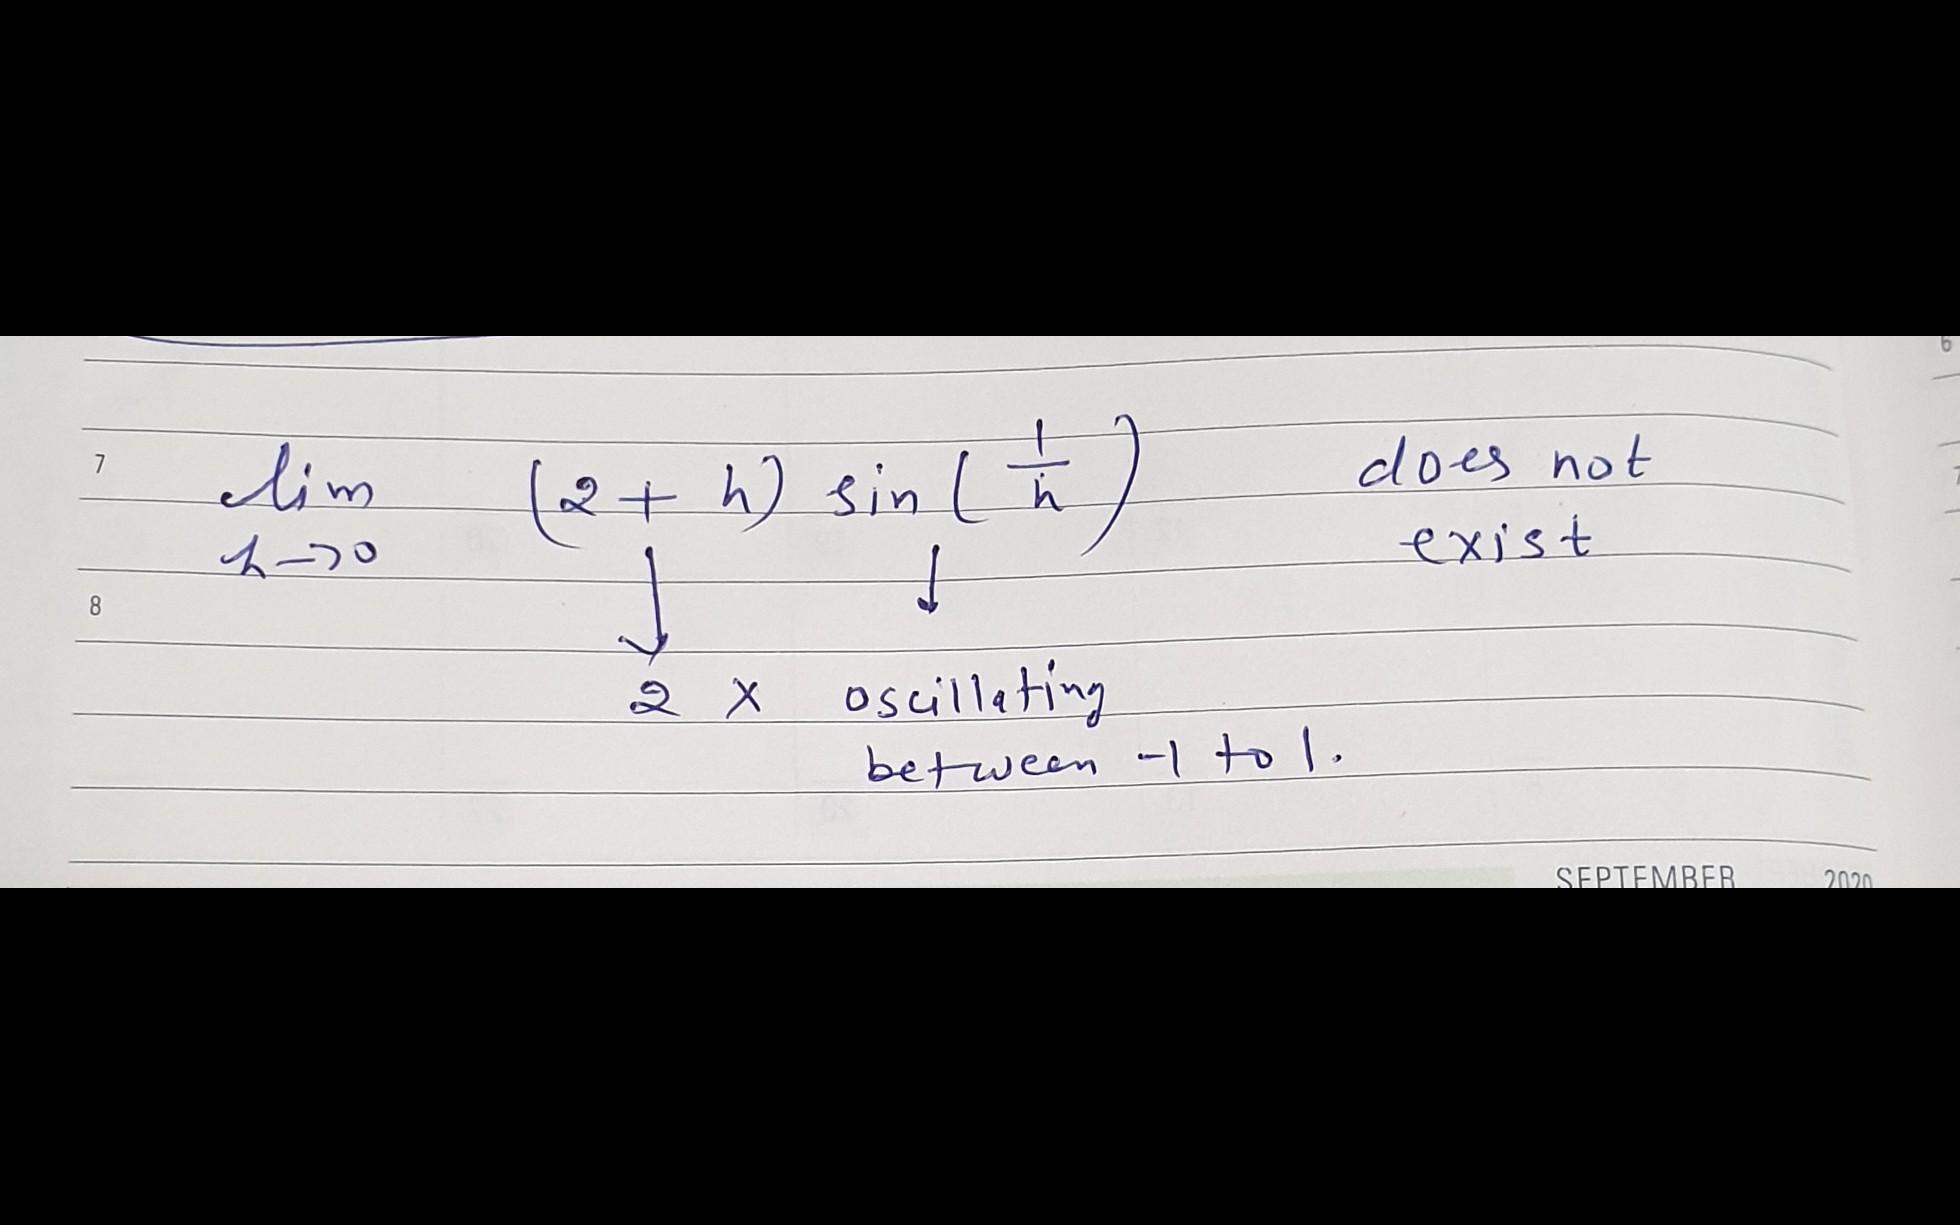 6
7 lim (2 + h) sin (1/h) does not
h→0 exist
8
2 × oscillating
between -1 to 1.
SEPTEMBER 2020